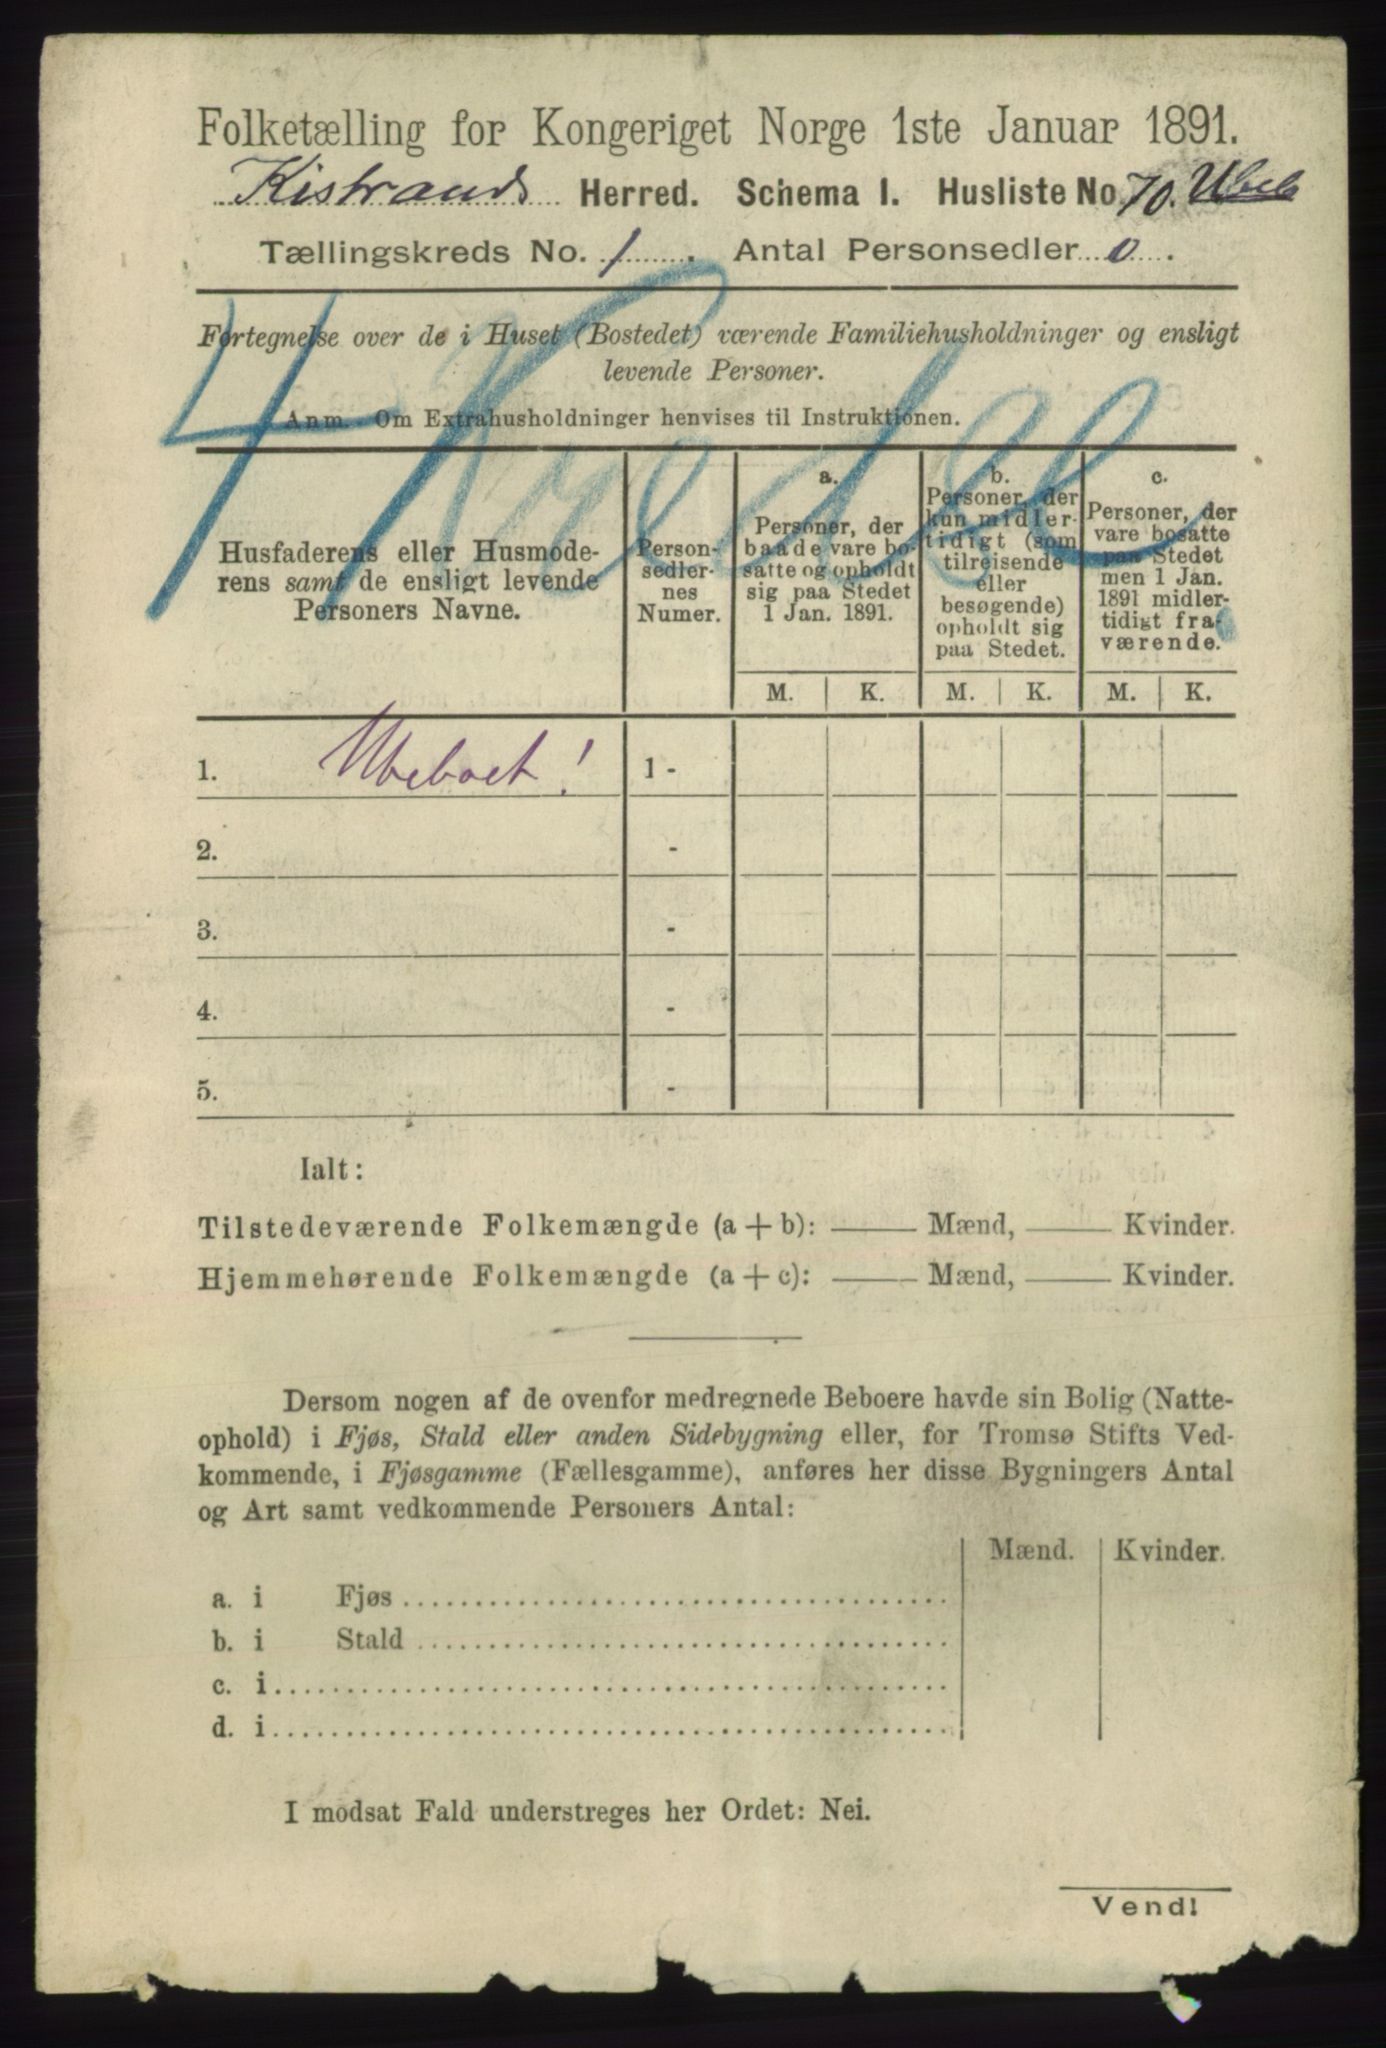 Folketælling for Kongeriget Norge 1ste Januar 1891.
Kistrands Herred. Schema I. Husliste No. 70. Ubeb
Tællingskreds No. 1. Antal Personsedler 0.
Fortegnelse over de i Huset (Bostedet) værende Familiehusholdninger og ensligt
levende Personer.
Anm. Om Extrahusholdninger henvises til Instruktionen.
Husfaderens eller Husmode-
rens samt de ensligt levende
Personers Navne.
Person-
sedler-
nes
Numer.
a.
Personer, der
baade vare bo-
satte og opholdt
sig paa Stedet
1 Jan. 1891.
b.
Personer, der
kun midler-
tidigt (som
tilreisende
eller
besøgende)
opholdt sig
paa Stedet.
c.
Personer, der
vare bosatte
paa Stedet
men 1 Jan.
1891 midler-
tidigt fra-
værende.
M. K. M. K. M. K.
1. Ubeboet! 1 -
2. -
3. -
4. -
5. -
Ialt:
Tilstedeværende Folkemængde (a + b): —— Mænd, —— Kvinder.
Hjemmehørende Folkemængde (a + c): —— Mænd, —— Kvinder.
Dersom nogen af de ovenfor medregnede Beboere havde sin Bolig (Natte-
ophold) i Fjøs, Stald eller anden Sidebygning eller, for Tromsø Stifts Ved-
kommende, i Fjøsgamme (Fællesgamme), anføres her disse Bygningers Antal
og Art samt vedkommende Personers Antal:
Mænd. Kvinder.
a. i Fjøs
b. i Stald
c. i
d. i
I modsat Fald understreges her Ordet: Nei.
Vend!